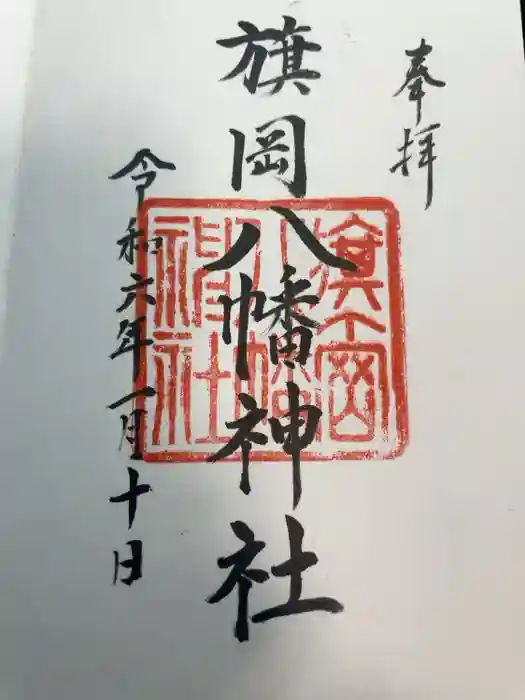 奉拝
旗岡八幡神社
旗岡八幡神社
令和六年一月十日